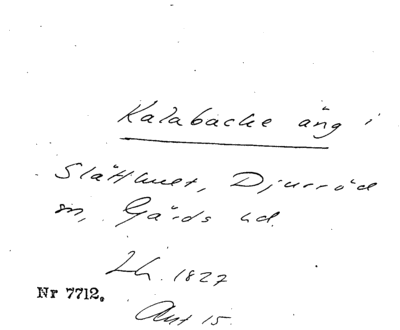 Kalabacke äng i
Slätthult, Djurröd
sn, Gärds hd.
Lh. 1827
Nr 7712.
Akt 15.